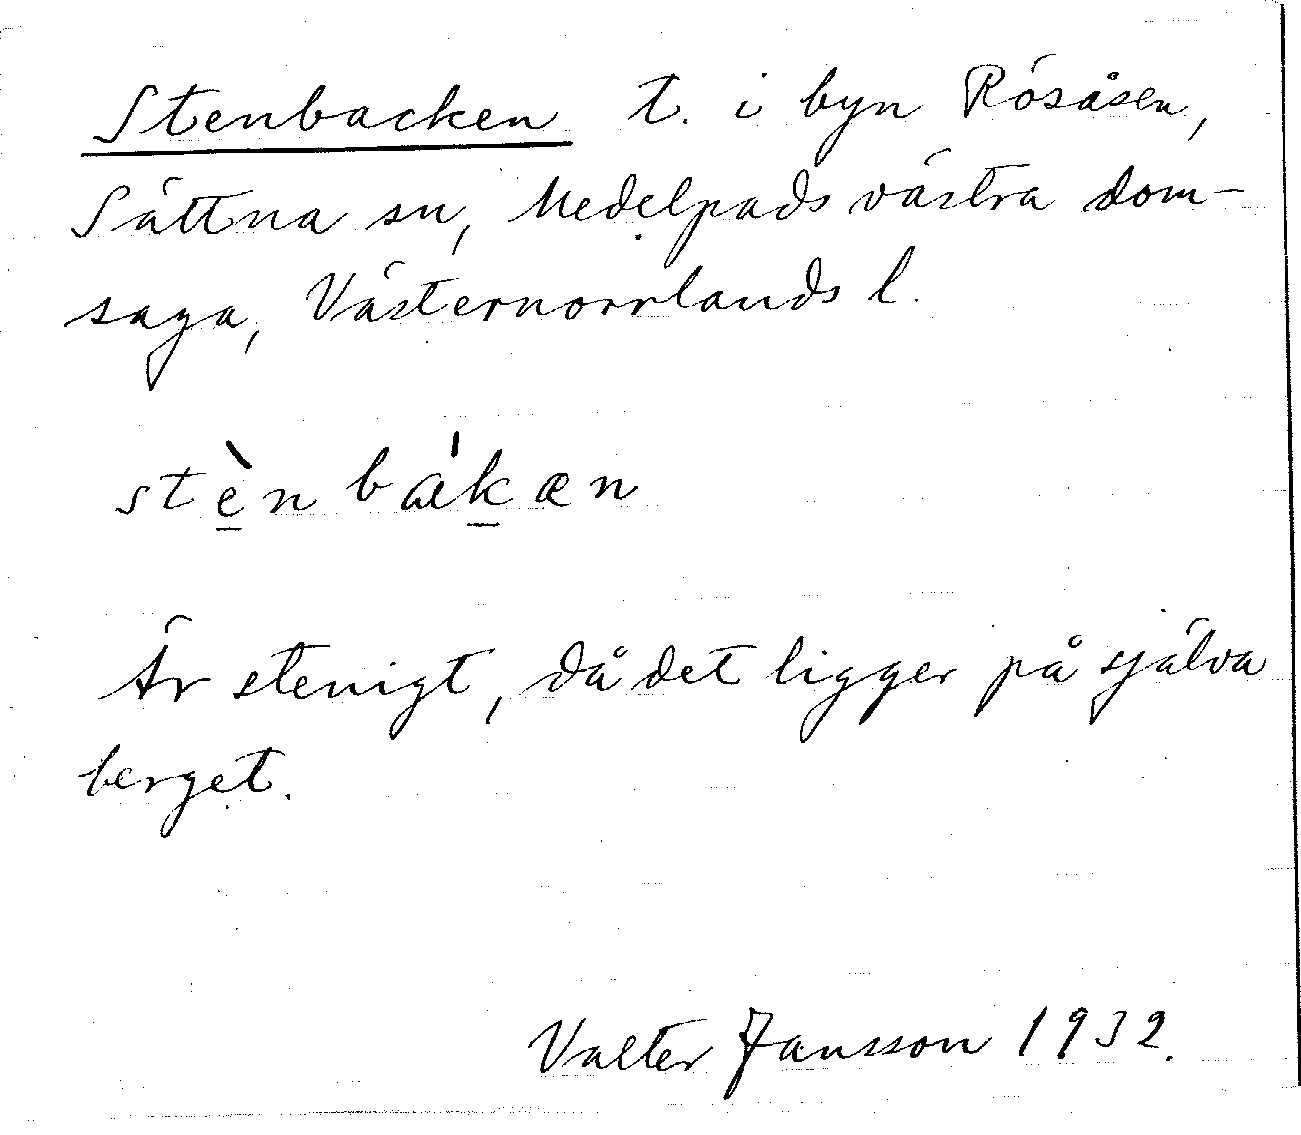 Stenbacken t. i byn Rösåsen,
Sättna sn, Medelpads västra dom-
saga, Västernorrlands l.
stè̱nbá̍ḵæn
Är stenigt, då det ligger på själva
berget.
Valter Jansson 1932.